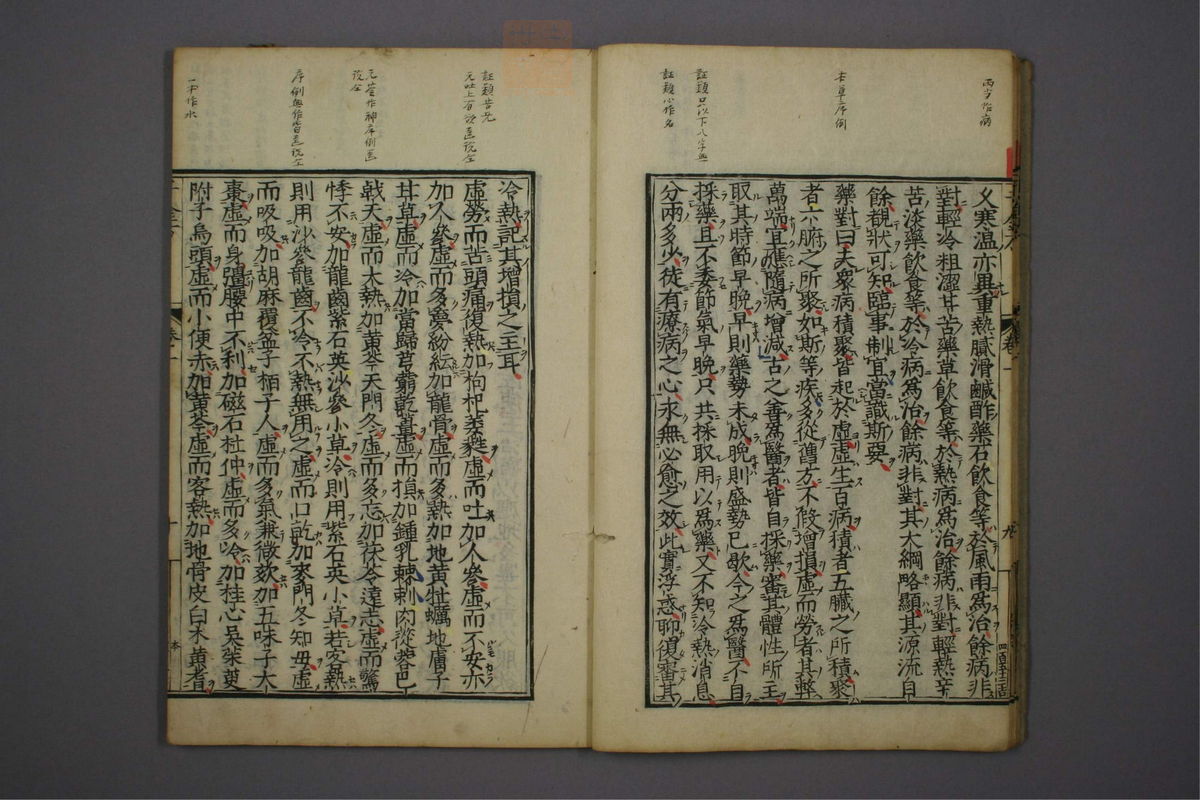 兩方作病
本草序例
證類只以下八字無
證類心作名
乂寒温亦異重熱膩滑鹹酢藥石飲食等於風雨為治餘病非
對輕冷粗澀甘苦藥草飲食等於熱病為治餘病非對輕熱辛
苦淡藥飲食等於冷病為治餘病非對其大綱略顯其源流自
餘覩狀可知臨事制宜當識斯要
藥對曰夫衆病積聚皆起於虛虛生百病積者五臟之所積聚
者六腑之所聚如斯等疾多從舊方不假增損虛而勞者其弊
萬端宜應隨病增減古之善為醫者皆自採藥審其體性所主
取其時節早晚早則藥勢未成晚則盛勢已歇今之為醫不自
採藥且不委節氣早晚只共採取用以為藥又不知冷熱消息
分兩多少徒有療病之心永無必愈之效此實浮惑聊復審其
證類苦先
元吐上有欲醫說仝
序例無作皆醫說仝
一本作水
冷熱記其增損之主耳
虛勞而苦頭痛復熱加枸杞萎蕤虛而吐加人參虛而不安亦
加人參虛而多夢紛紜加龍骨虛而多熱加地黄牡蠣地膚子
甘草虛而冷加當歸芎藭乾薑虛而損加鍾乳棘刺肉蓯蓉巴
戟天虛而大熱加黄芩天門冬虛而多忘加茯苓遠志虛而驚
悸不安加龍齒紫石英沙參小草冷則用紫石英小草若客熱
則用沙參龍齒不冷不熱無用之虛而口乾加麥門冬知母虛
而吸吸加胡麻覆盆子栢子人虛而多氣兼微欬加五味子大
棗虛而身彊腰中不利加磁石杜仲虛而多冷加桂心吳茱萸
附子烏頭虛而小便赤加黄芩虛而客熱加地骨皮白术黄耆